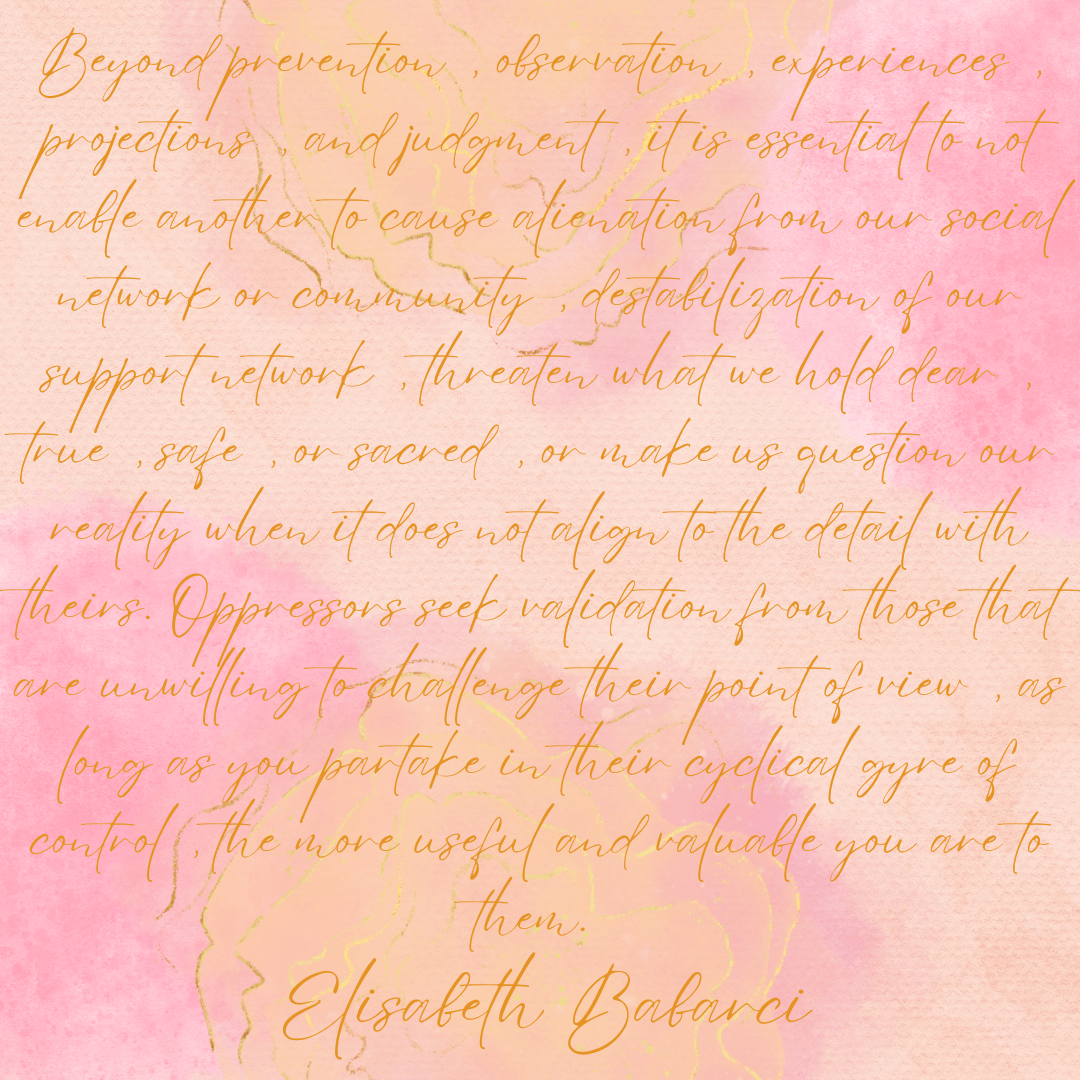 Beyond prevention , observation , experiences ,
projections , and judgment , it is essential to not
enable another to cause alienation from our social
network or community , destabilization of our
support network , threaten what we hold dear ,
true , safe , or sacred , or make us question our
reality when it does not align to the detail with
theirs. Oppressors seek validation from those that
are unwilling to challenge their point of view , as
long as you partake in their cyclical gyre of
control , the more useful and valuable you are to
them.
Elisabeth Babarci